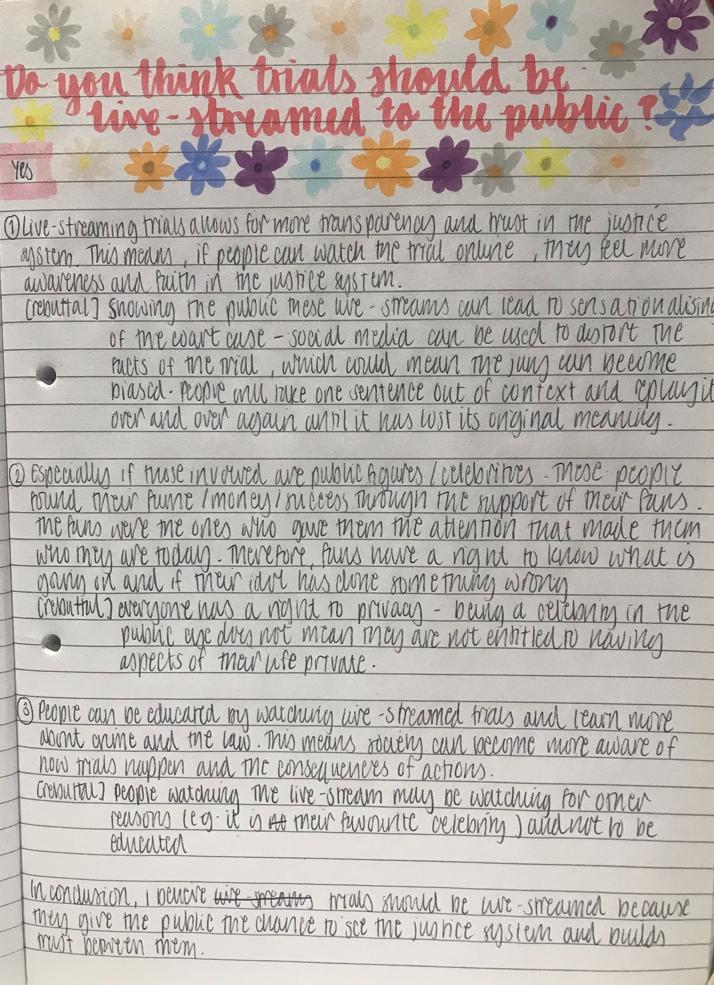 Do you think trials should be
live-streamed to the public?
Yes
① Live-streaming trials allows for more transparency and trust in the justice
system. This means, if people can watch the trial online, they feel more
awareness and faith in the justice system.
[rebuttal] Showing the public these live-streams can lead to sensationalising
of the court case – social media can be used to distort the
facts of the trial, which could mean the jury can become
biased. People will take one sentence out of context and replay it
over and over again until it has lost its original meaning.
② Especially if those involved are public figures/celebrities. These people
found their fame/money/success through the support of their fans.
The fans were the ones who gave them the attention that made them
who they are today. Therefore, fans have a right to know what is
going on and if their idol has done something wrong
[rebuttal] everyone has a right to privacy – being a celebrity in the
public eye does not mean they are not entitled to having
aspects of their life private.
③ People can be educated by watching live-streamed trials and learn more
about crime and the law. This means society can become more aware of
how trials happen and the consequences of actions.
[rebuttal] people watching the live-stream may be watching for other
reasons (e.g. it is their favourite celebrity) and not to be
educated
In conclusion, i believe live-streams trials should be live-streamed because
they give the public the chance to see the justice system and builds
trust between them.